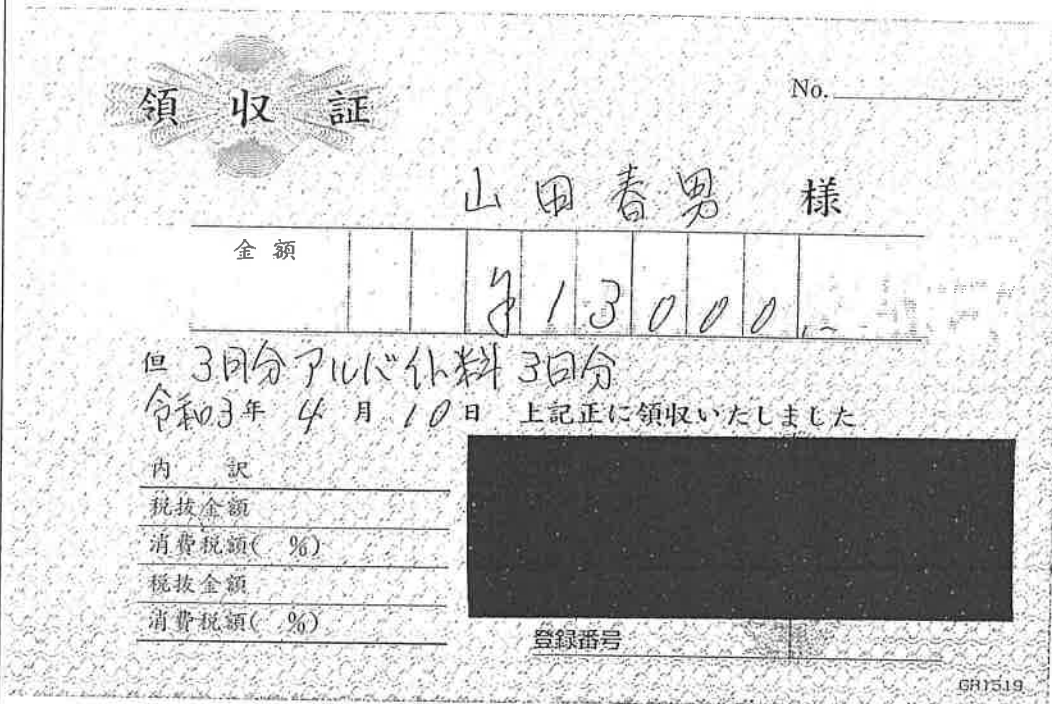 領収証
No.
山田春男 様
金額 ¥13000.-
但 3日分アルバイト料 3日分
令和3年 4月 10日 上記正に領収いたしました
内 訳
税抜金額
消費税額( %)
税抜金額
消費税額( %)
登録番号
GR1519